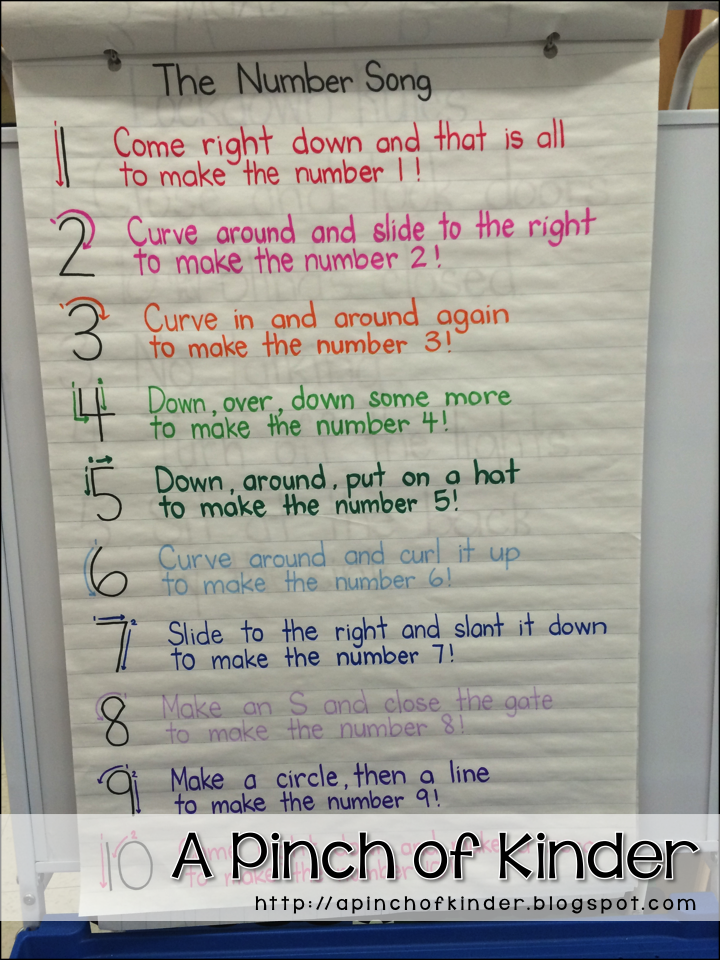 The Number Song
1 Come right down and that is all
to make the number 1!
2 Curve around and slide to the right
to make the number 2!
3 Curve in and around again
to make the number 3!
4 Down, over, down some more
to make the number 4!
5 Down, around, put on a hat
to make the number 5!
6 Curve around and curl it up
to make the number 6!
7 Slide to the right and slant it down
to make the number 7!
8 Make an S and close the gate
to make the number 8!
9 Make a circle, then a line
to make the number 9!
10
A Pinch of Kinder
http://apinchofkinder.blogspot.com